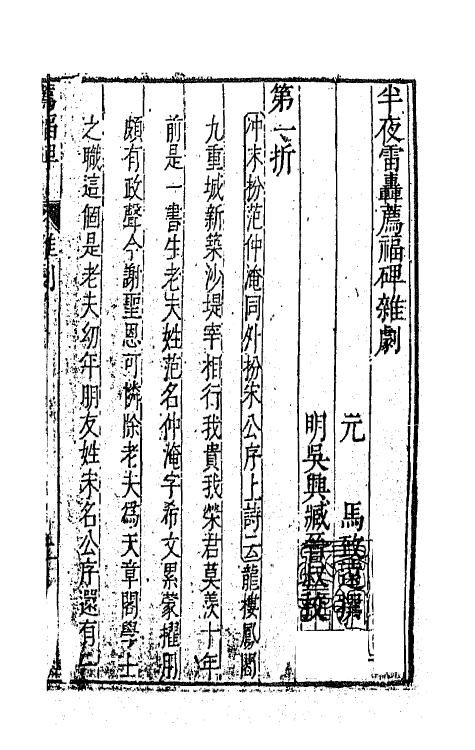 半夜雷轟薦福碑雜劇
元　馬致遠撰
明吳興臧晉叔校
第一折
冲末扮范仲淹同外扮宋公序上詩云龍樓鳳閣
九重城新築沙堤宰相行我貴我榮君莫羡十年
前是一書生老夫姓范名仲淹字希文累蒙擢用
頗有政聲今謝聖恩可憐除老夫爲天章閣學士
之職這個是老夫幼年朋友姓宋名公序還有一
薦福碑
雜劇